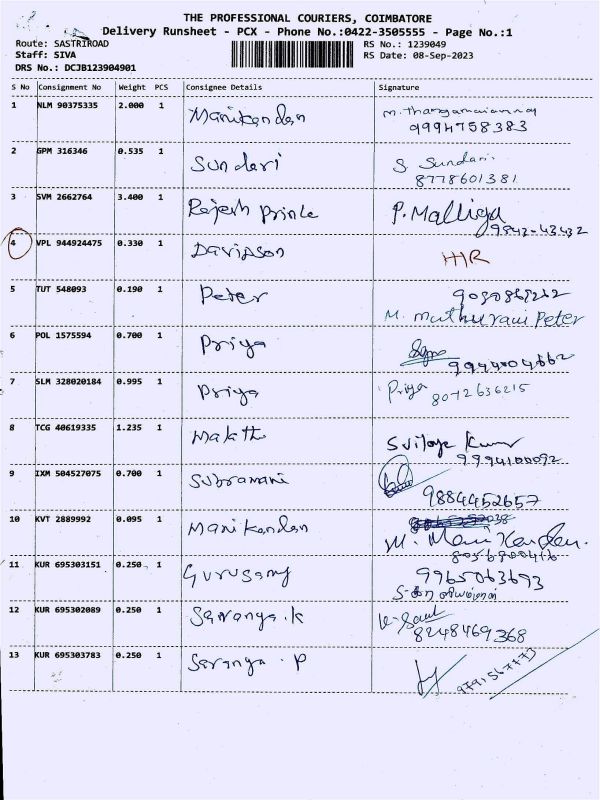 THE PROFESSIONAL COURIERS, COIMBATORE
Delivery Runsheet - PCX - Phone No.:0422-3505555 - Page No.:1
Route: SASTRIROAD RS No.: 1239049
Staff: SIVA RS Date: 08-Sep-2023
DRS No.: DCJB123904901
S No Consignment No Weight PCS Consignee Details Signature
1 NLM 90375335 2.000 1 Manikandan
9994758383
2 GPM 316346 0.535 1 Sundari S Sundari
8778601381
3 SVM 2662764 3.400 1 Rajesh Prince P. Malliga
9842-43432
4 VPL 944924475 0.330 1 Davidson HR
5 TUT 548093 0.190 1 Peter
M. Muthurani Peter
6 POL 1575594 0.700 1 Priya
9944004662
7 SLM 328020184 0.995 1 Priya Priya
8072636215
8 TCG 40619335 1.235 1
9994100092
9 IXM 504527075 0.700 1 Subramani
9884452657
10 KVT 2889992 0.095 1 Manikandan M. Mani Kandan.
11 KUR 695303151 0.250 1 Gurusamy 9965063693
12 KUR 695302089 0.250 1 Saranya.K
8248469368
13 KUR 695303783 0.250 1 Saranya.P
9791567773